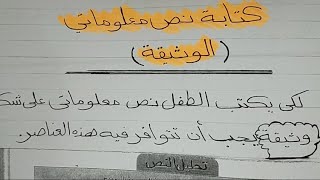 كتابة نص معلوماتي
(الوثيقة)
لكي يكتب الطفل نص معلوماتي على شكل
وثيقة يجب أن تتوافر فيه هذه العناصر.
تحليل النص